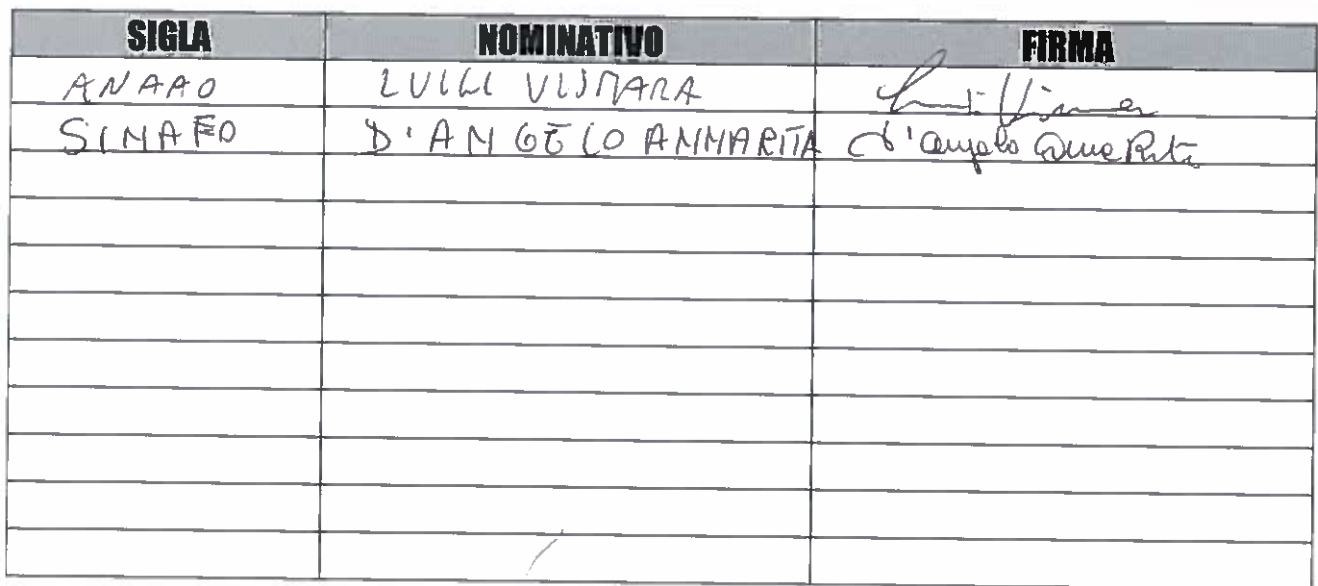 SIGLA NOMINATIVO FIRMA
ANAAO LUIGI VISMARA Luigi Vismara
SINAFO D'ANGELO ANNARITA d'angelo Anna Rita